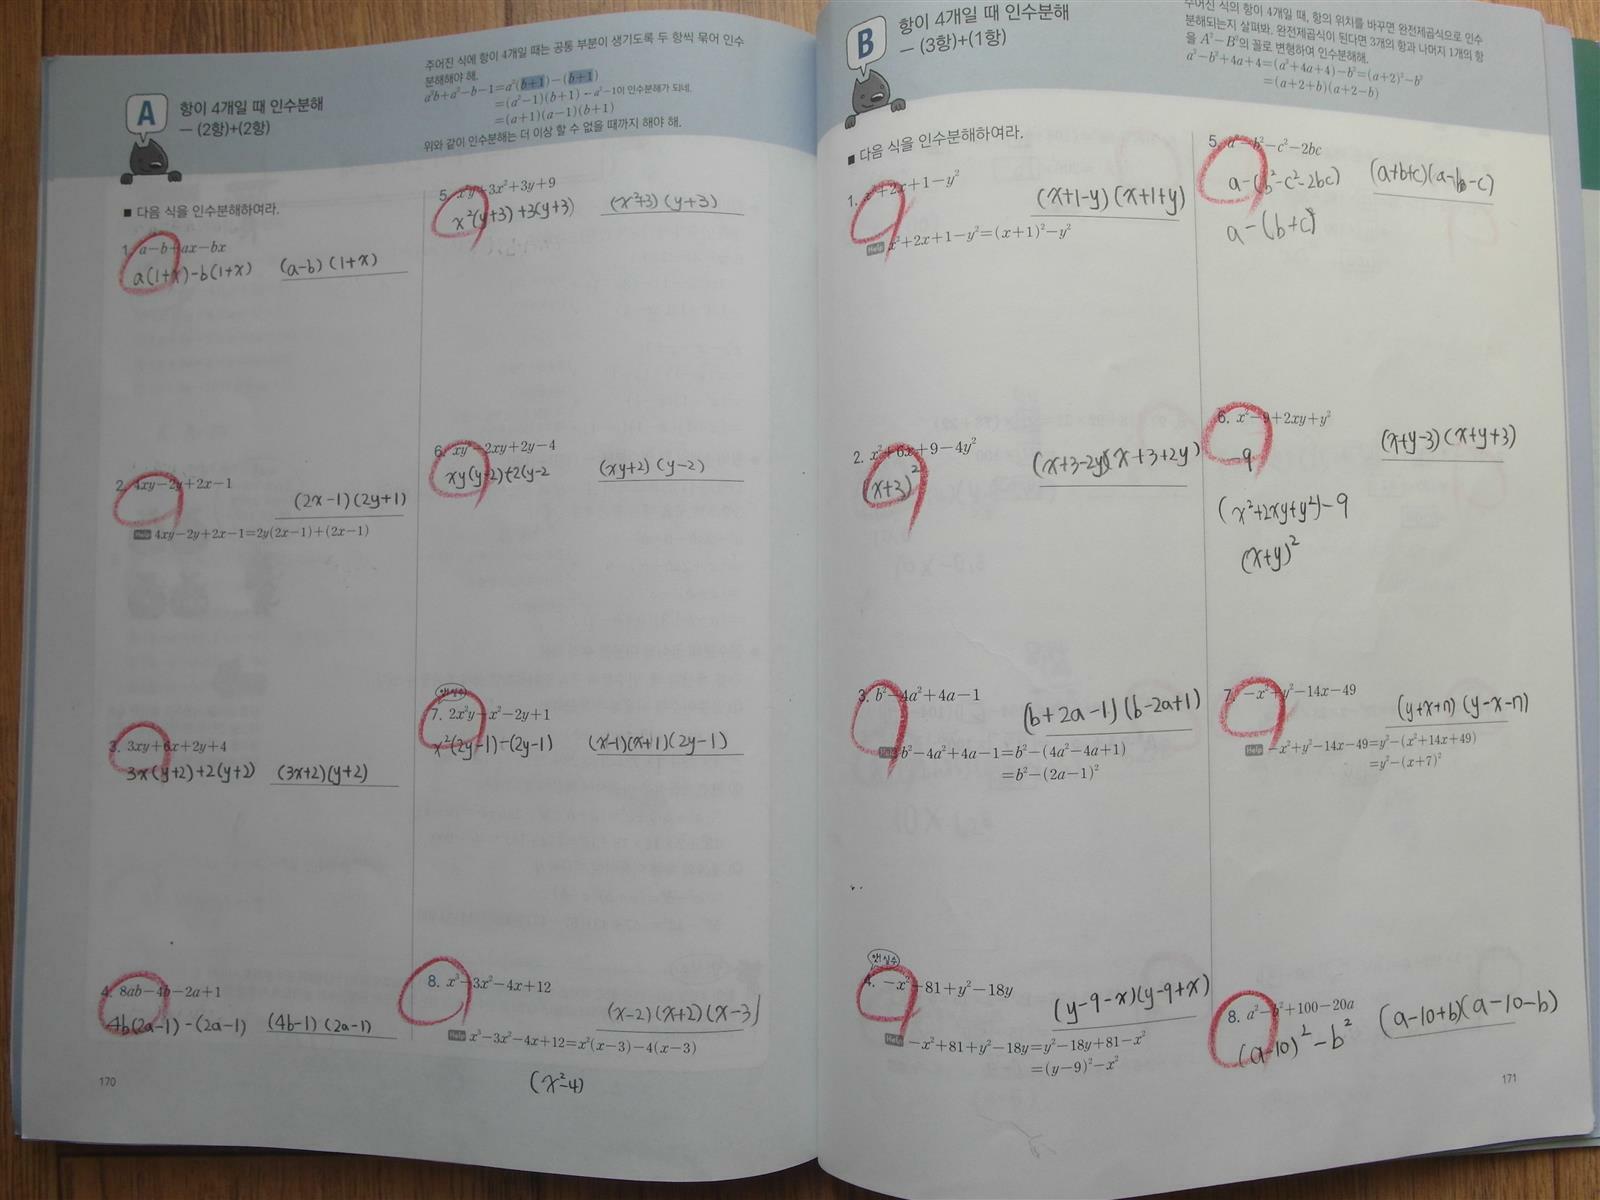 A
항이 4개일 때 인수분해
— (2항)+(2항)
주어진 식에 항이 4개일 때는 공통 부분이 생기도록 두 항씩 묶어 인수
분해해야 해.
a²b+a²−b−1=a²(b+1)−(b+1)
=(a²−1)(b+1) − a²−1이 인수분해가 되네.
=(a+1)(a−1)(b+1)
위와 같이 인수분해는 더 이상 할 수 없을 때까지 해야 해.
■ 다음 식을 인수분해하여라.
1. a−b+ax−bx
a(1+x)−b(1+x) (a−b)(1+x)
2. 4xy−2y+2x−1
(2x−1)(2y+1)
Help 4xy−2y+2x−1=2y(2x−1)+(2x−1)
3. 3xy+6x+2y+4
3x(y+2)+2(y+2) (3x+2)(y+2)
4. 8ab−4b−2a+1
4b(2a−1)−(2a−1) (4b−1)(2a−1)
170
5. x²y+3x²+3y+9
x²(y+3)+3(y+3) (x²+3)(y+3)
6. xy²−2xy+2y−4
xy(y−2)+2(y−2 (xy+2)(y−2)
앗!실수
7. 2x²y−x²−2y+1
x²(2y−1)−(2y−1) (x−1)(x+1)(2y−1)
8. x³−3x²−4x+12
(x−2)(x+2)(x−3)
Help x³−3x²−4x+12=x²(x−3)−4(x−3)
(x²−4)
B
항이 4개일 때 인수분해
— (3항)+(1항)
주어진 식의 항이 4개일 때, 항의 위치를 바꾸면 완전제곱식으로 인수
분해되는지 살펴봐. 완전제곱식이 된다면 3개의 항과 나머지 1개의 항
을 A²−B²의 꼴로 변형하여 인수분해해.
a²−b²+4a+4=(a²+4a+4)−b²=(a+2)²−b²
=(a+2+b)(a+2−b)
■ 다음 식을 인수분해하여라.
1. x²+2x+1−y²
(x+1−y)(x+1+y)
Help x²+2x+1−y²=(x+1)²−y²
2. x²+6x+9−4y²
(x+3)² (x+3−2y)(x+3+2y)
3. b²−4a²+4a−1
(b+2a−1)(b−2a+1)
Help b²−4a²+4a−1=b²−(4a²−4a+1)
=b²−(2a−1)²
앗!실수
4. −x²+81+y²−18y
(y−9−x)(y−9+x)
Help −x²+81+y²−18y=y²−18y+81−x²
=(y−9)²−x²
5. a²−b²−c²−2bc
a−(b²−c²−2bc) (a+b+c)(a−b−c)
a−(b+c)²
6. x²−9+2xy+y²
−9 (x+y−3)(x+y+3)
(x²+2xy+y²)−9
(x+y)²
7. −x²+y²−14x−49
(y+x+7)(y−x−7)
Help −x²+y²−14x−49=y²−(x²+14x+49)
=y²−(x+7)²
8. a²−b²+100−20a
(a−10)²−b² (a−10+b)(a−10−b)
171